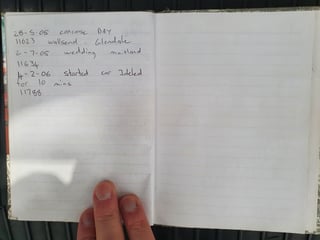 28-5-05 concorse DAY
11623 wallsend - Glendale
2-7-05 wedding maitland
11634
4-2-06 started car Ideled
for 10 mins
11788